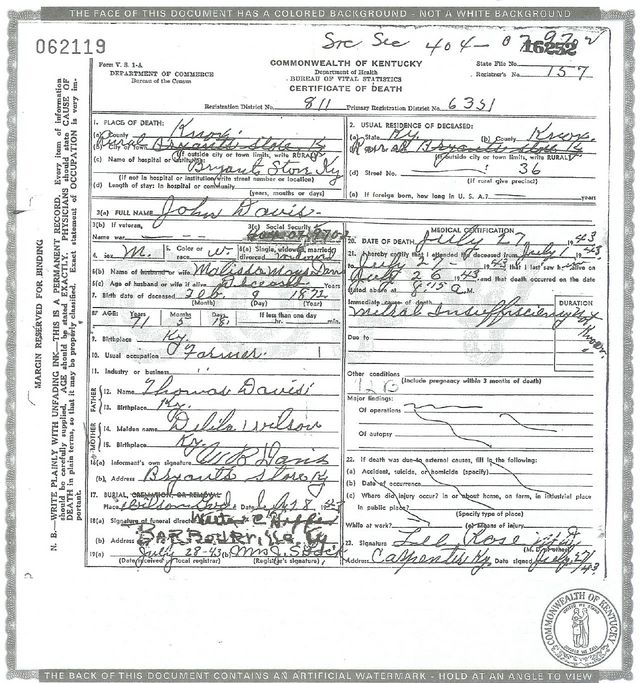 THE FACE OF THIS DOCUMENT HAS A COLORED BACKGROUND - NOT A WHITE BACKGROUND
062119
Soc Sec 404-
16252
Form V. S. 1-A
DEPARTMENT OF COMMERCE
Bureau of the Census
COMMONWEALTH OF KENTUCKY
Department of Health
BUREAU OF VITAL STATISTICS
CERTIFICATE OF DEATH
State File No.
Registrar's No. 157
Registration District No. 811 Primary Registration District No. 6351
MARGIN RESERVED FOR BINDING
N. B.—WRITE PLAINLY WITH UNFADING INK—THIS IS A PERMANENT RECORD. Every item of information
should be carefully supplied. AGE should be stated EXACTLY. PHYSICIANS should state CAUSE OF
DEATH in plain terms, so that it may be properly classified. Exact statement of OCCUPATION is very im-
portant.
1. PLACE OF DEATH:
(a) County Knox
(b) City or town Rural Bryants Store Ky
(If outside city or town limits, write RURAL)
(c) Name of hospital or institution: Bryant Store Ky
(If not in hospital or institution write street number or location)
(d) Length of stay: In hospital or community
(years, months or days)
2. USUAL RESIDENCE OF DECEASED:
(a) State Ky. (b) County Knox
(c) City or town Rural Bryants Store Ky
(If outside city or town limits, write RURAL)
(d) Street No. 36
(If rural give precinct)
(e) If foreign born, how long in U. S. A.? years
3(a) FULL NAME John Davis
3(b) If veteran,
Name war
3(c) Social Security
4. Sex M. 5. Color or race W 6(a) Single, widowed, married, divorced widowed
6(b) Name of husband or wife Malissa Mays Davis
6(c) Age of husband or wife if alive Deceased
7. Birth date of deceased Feb. 9 1872
(Month) (Day) (Year)
8. AGE: Years Months Days If less than one day
71 5 18 hr. min.
9. Birthplace Ky.
10. Usual occupation Farmer
11. Industry or business
FATHER
12. Name Thomas Davis
13. Birthplace Ky.
MOTHER
14. Maiden name Delila Wilson
15. Birthplace Ky
16(a) Informant's own signature W. B. Davis
(b) Address Bryants Store Ky
17. BURIAL, CREMATION, OR REMOVAL
Place Date July 28 1943
18(a) Signature of funeral director
(b) Address Barbourville, Ky
19(a) July 28-43 (b) Mrs
(Date received by local registrar) (Registrar's signature)
MEDICAL CERTIFICATION
20. DATE OF DEATH July 27 1943
21. I hereby certify that I attended the deceased from July 1 1943
to July 27 1943 that I last saw him alive on
July 26 1943 and that death occurred on the date
stated above at 8:15 A M.
DURATION
Immediate cause of death
Mitral Insufficiency Not Known
Due to
Other conditions
(Include pregnancy within 3 months of death)
Major findings:
Of operations
Of autopsy
22. If death was due to external causes, fill in the following:
(a) Accident, suicide, or homicide (specify)
(b) Date of occurrence
(c) Where did injury occur? in or about home, on farm, in industrial place
In public place?
(Specify type of place)
While at work? (e) Means of injury
23. Signature
(M. D. or other)
Address Carpenter Ky. Date signed July 27/43
COMMONWEALTH OF KENTUCKY
THE BACK OF THIS DOCUMENT CONTAINS AN ARTIFICIAL WATERMARK - HOLD AT AN ANGLE TO VIEW